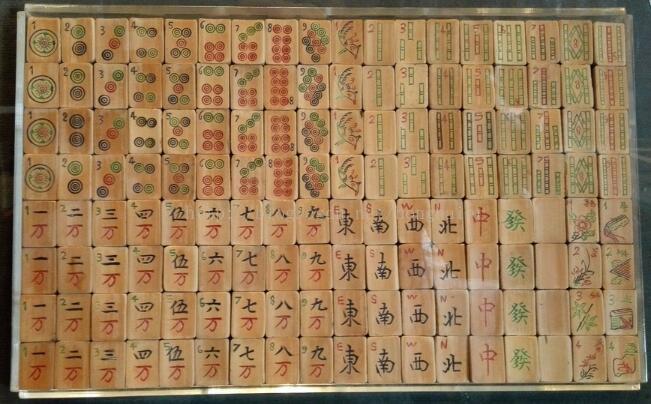 1 2 3 4 5 6 7 8 9 1 2 3 4 5 6 7 8 9
1 2 3 4 5 6 7 8 9 1 2 3 4 5 6 7 8 9
1 2 3 4 5 6 7 8 9 1 2 3 4 5 6 7 8 9
1 2 3 4 5 6 7 8 9 1 2 3 4 5 6 7 8 9
1 一万 2 二万 3 三万 4 四万 5 伍万 6 六万 7 七万 8 八万 9 九万 E 東 S 南 W 西 N 北 中 發 1
1 一万 2 二万 3 三万 4 四万 5 伍万 6 六万 7 七万 8 八万 9 九万 E 東 S 南 W 西 N 北 中 發 2 2
1 一万 2 二万 3 三万 4 四万 5 伍万 6 六万 7 七万 8 八万 9 九万 E 東 S 南 W 西 N 北 中 發 3 3
1 一万 2 二万 3 三万 4 四万 5 伍万 6 六万 7 七万 8 八万 9 九万 E 東 S 南 W 西 N 北 中 發 4 4